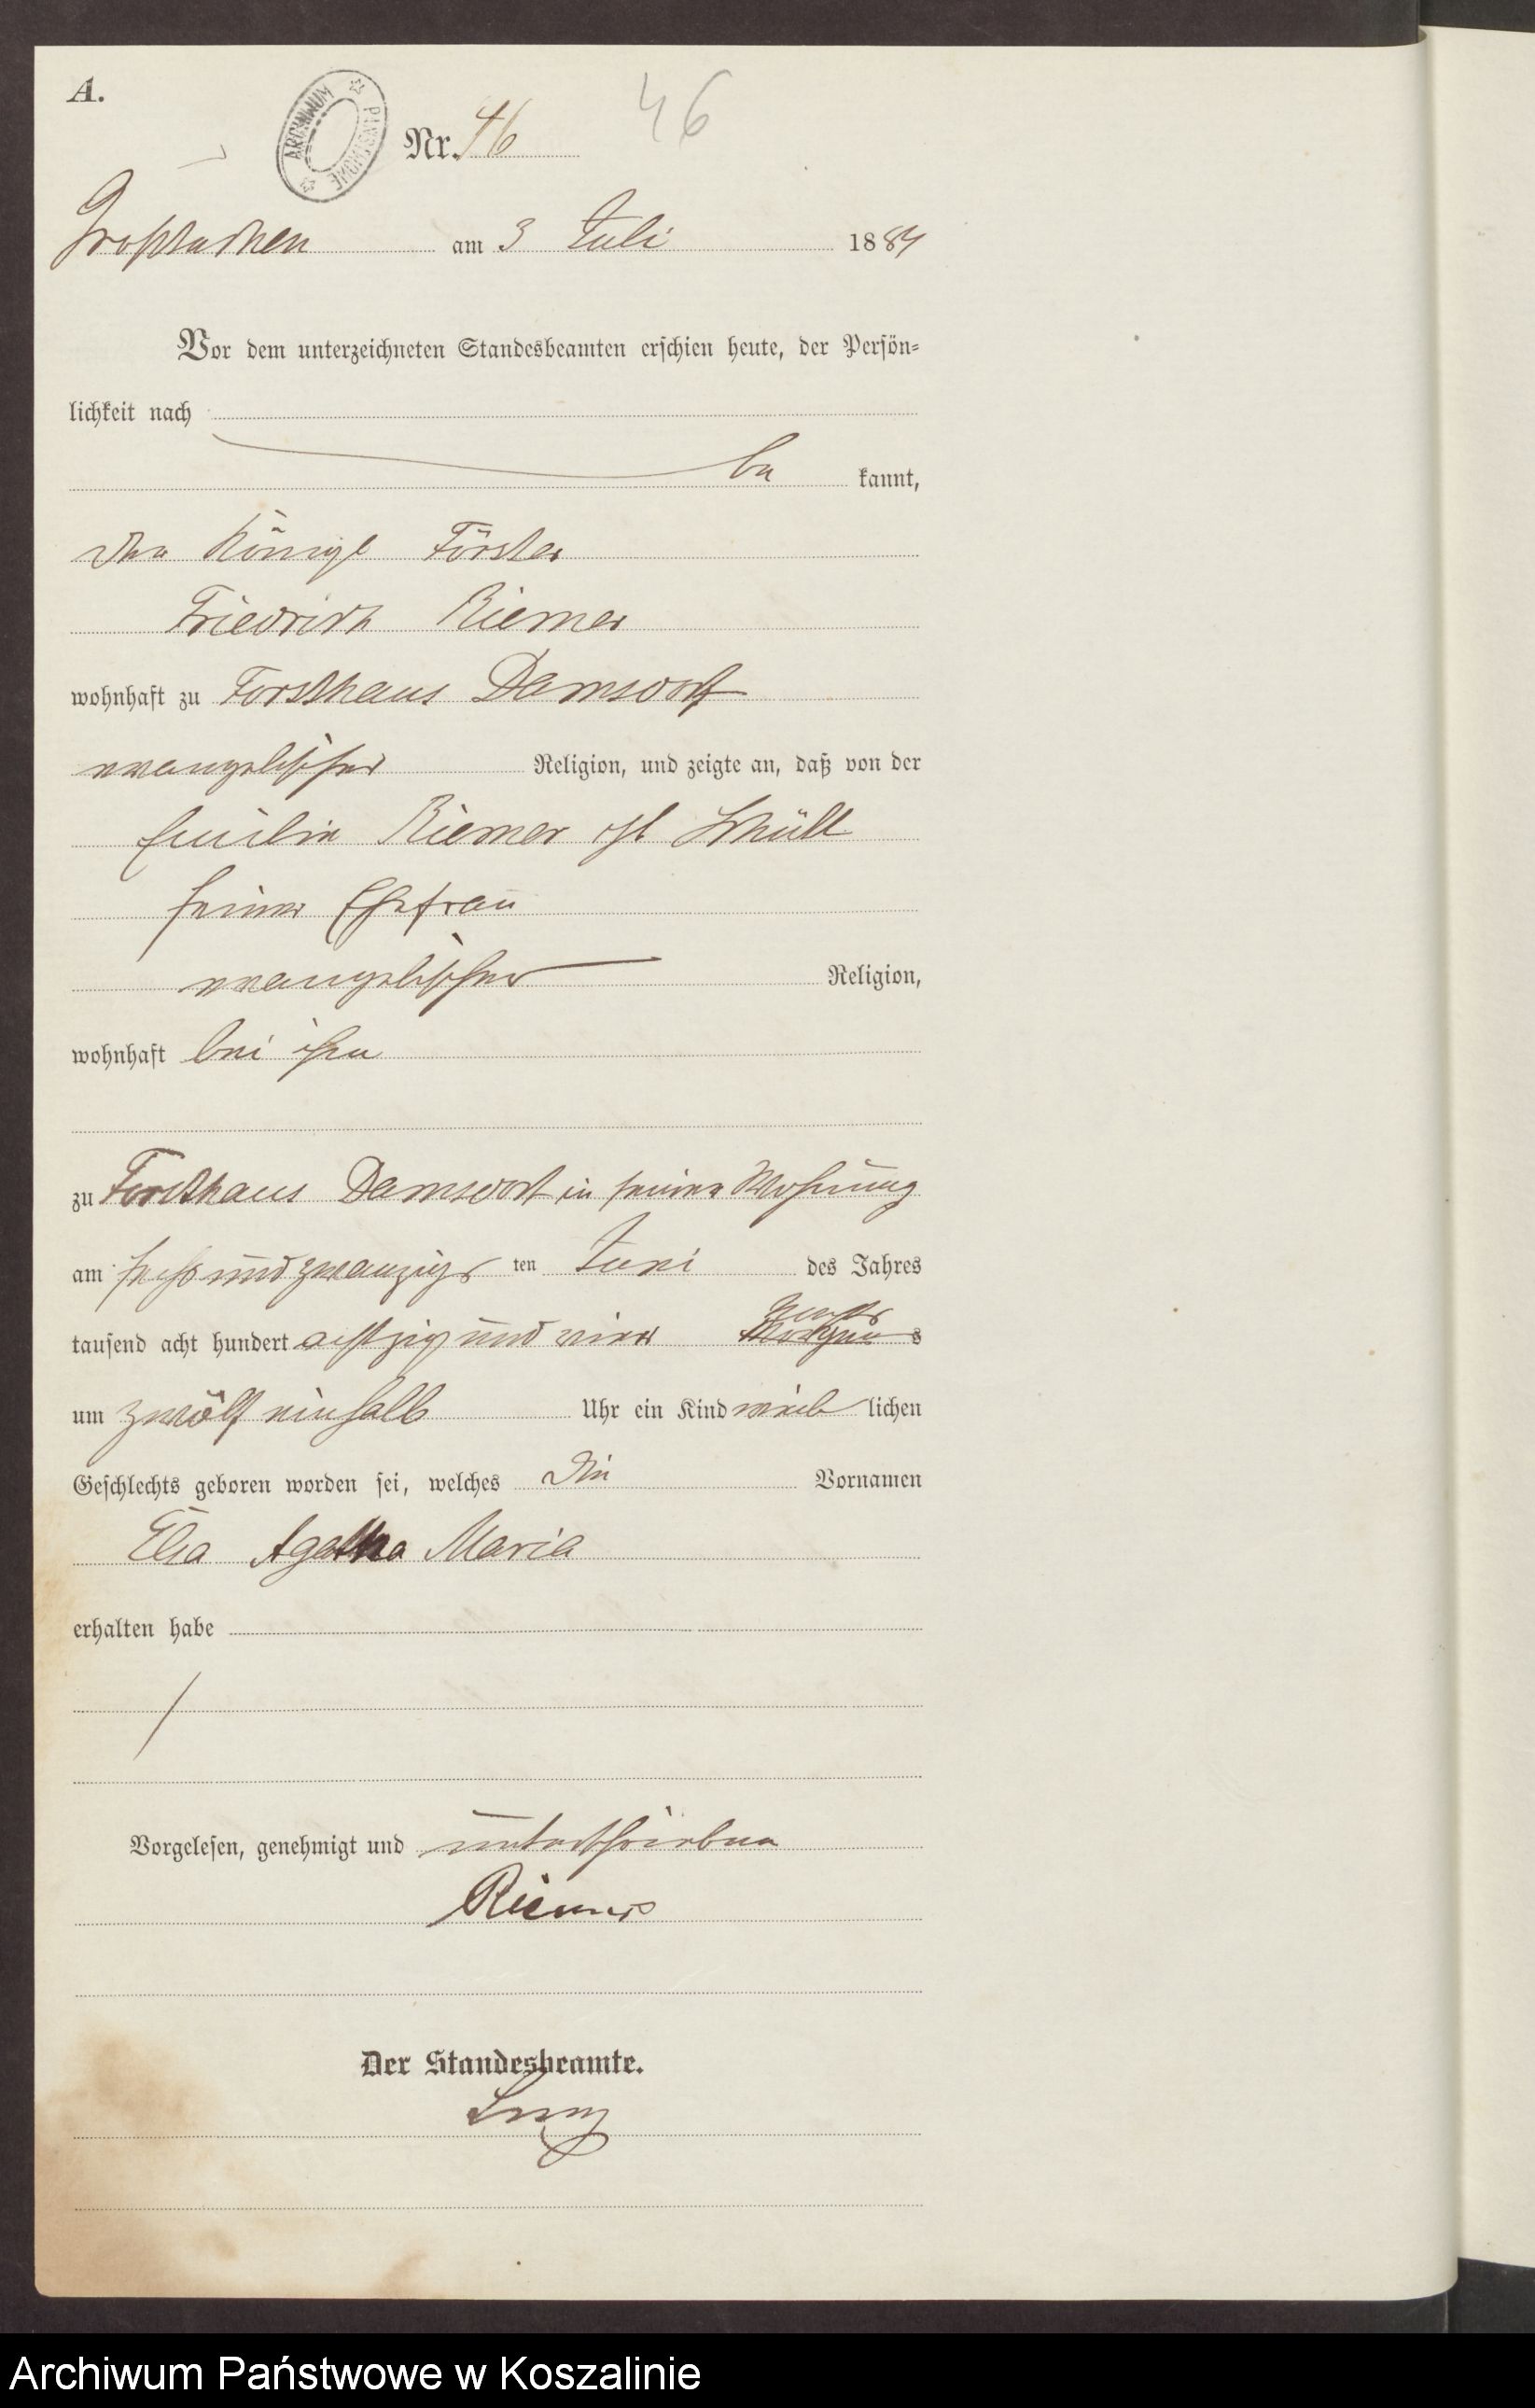 A.
ARCHIWUM PAŃSTWOWE
Nr. 46
46
Großtuchen am 3 Juli 1884
Vor dem unterzeichneten Standesbeamten erschien heute, der Persön-
lichkeit nach
be kannt,
der Königl Förster
Friedrich Riemer
wohnhaft zu Forsthaus Damsdorf
evangelischer Religion, und zeigte an, daß von der
Emilie Riemer geb
seiner Ehefrau
evangelischer Religion,
wohnhaft bei ihm
zu Forsthaus Damsdorf in seiner Wohnung
am sechsundzwanzigs ten Juni des Jahres
tausend acht hundert achtzig und vier Nachts
um zwölf einhalb Uhr ein Kind weib lichen
Geschlechts geboren worden sei, welches die Vornamen
Elsa Agatha Maria
erhalten habe
Vorgelesen, genehmigt und unterschrieben
Riemer
Der Standesbeamte.
Archiwum Państwowe w Koszalinie